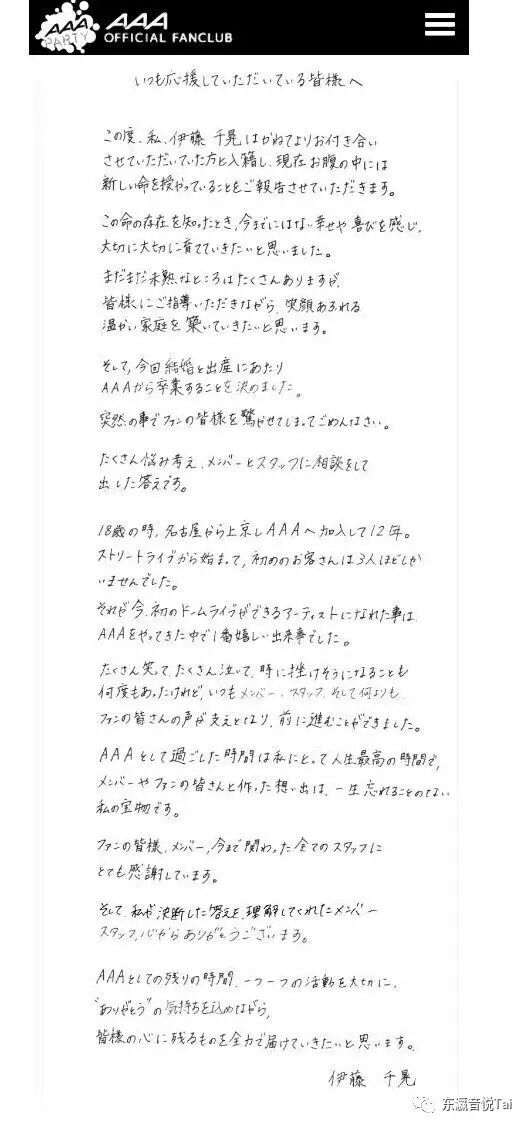 AAA
PARTY
AAA
OFFICIAL FANCLUB
いつも応援していただいている皆様へ
この度、私、伊藤千晃はかねてよりお付き合い
させていただいていた方と入籍し、現在お腹の中には
新しい命を授かっていることをご報告させていただきます。
この命の存在を知ったとき、今までにはない幸せや喜びを感じ、
大切に大切に育てていきたいと思いました。
まだまだ未熟なところはたくさんありますが、
皆様にご指導いただきながら、笑顔あふれる
温かい家庭を築いていきたいと思います。
そして、今回結婚と出産にあたり
AAAから卒業することを決めました。
突然の事でファンの皆様を驚かせてしまってごめんなさい。
たくさん悩み考え、メンバーとスタッフに相談をして
出した答えです。
18歳の時、名古屋から上京しAAAへ加入して12年。
ストリートライブから始まって、初めのお客さんは3人ほどしか
いませんでした。
それが今、初のドームライブができるアーティストになれた事は
AAAをやってきた中で1番嬉しい出来事でした。
たくさん笑って、たくさん泣いて、時に挫けそうになることも
何度もあったけれど、いつもメンバー、スタッフ、そして何よりも、
ファンの皆さんの声が支えとなり、前に進むことができました。
AAAとして過ごした時間は私にとって人生最高の時間で、
メンバーやファンの皆さんと作った想い出は、一生忘れることのない
私の宝物です。
ファンの皆様、メンバー、今まで関わった全てのスタッフに
とても感謝しています。
そして私が決断した答えを理解してくれたメンバー
スタッフ、心からありがとうございます。
AAAとしての残りの時間、一つ一つの活動を大切に、
"ありがとう"の気持ちを込めながら、
皆様の心に残るものを全力で届けていきたいと思います。
伊藤 千晃
东瀛音悦Tai